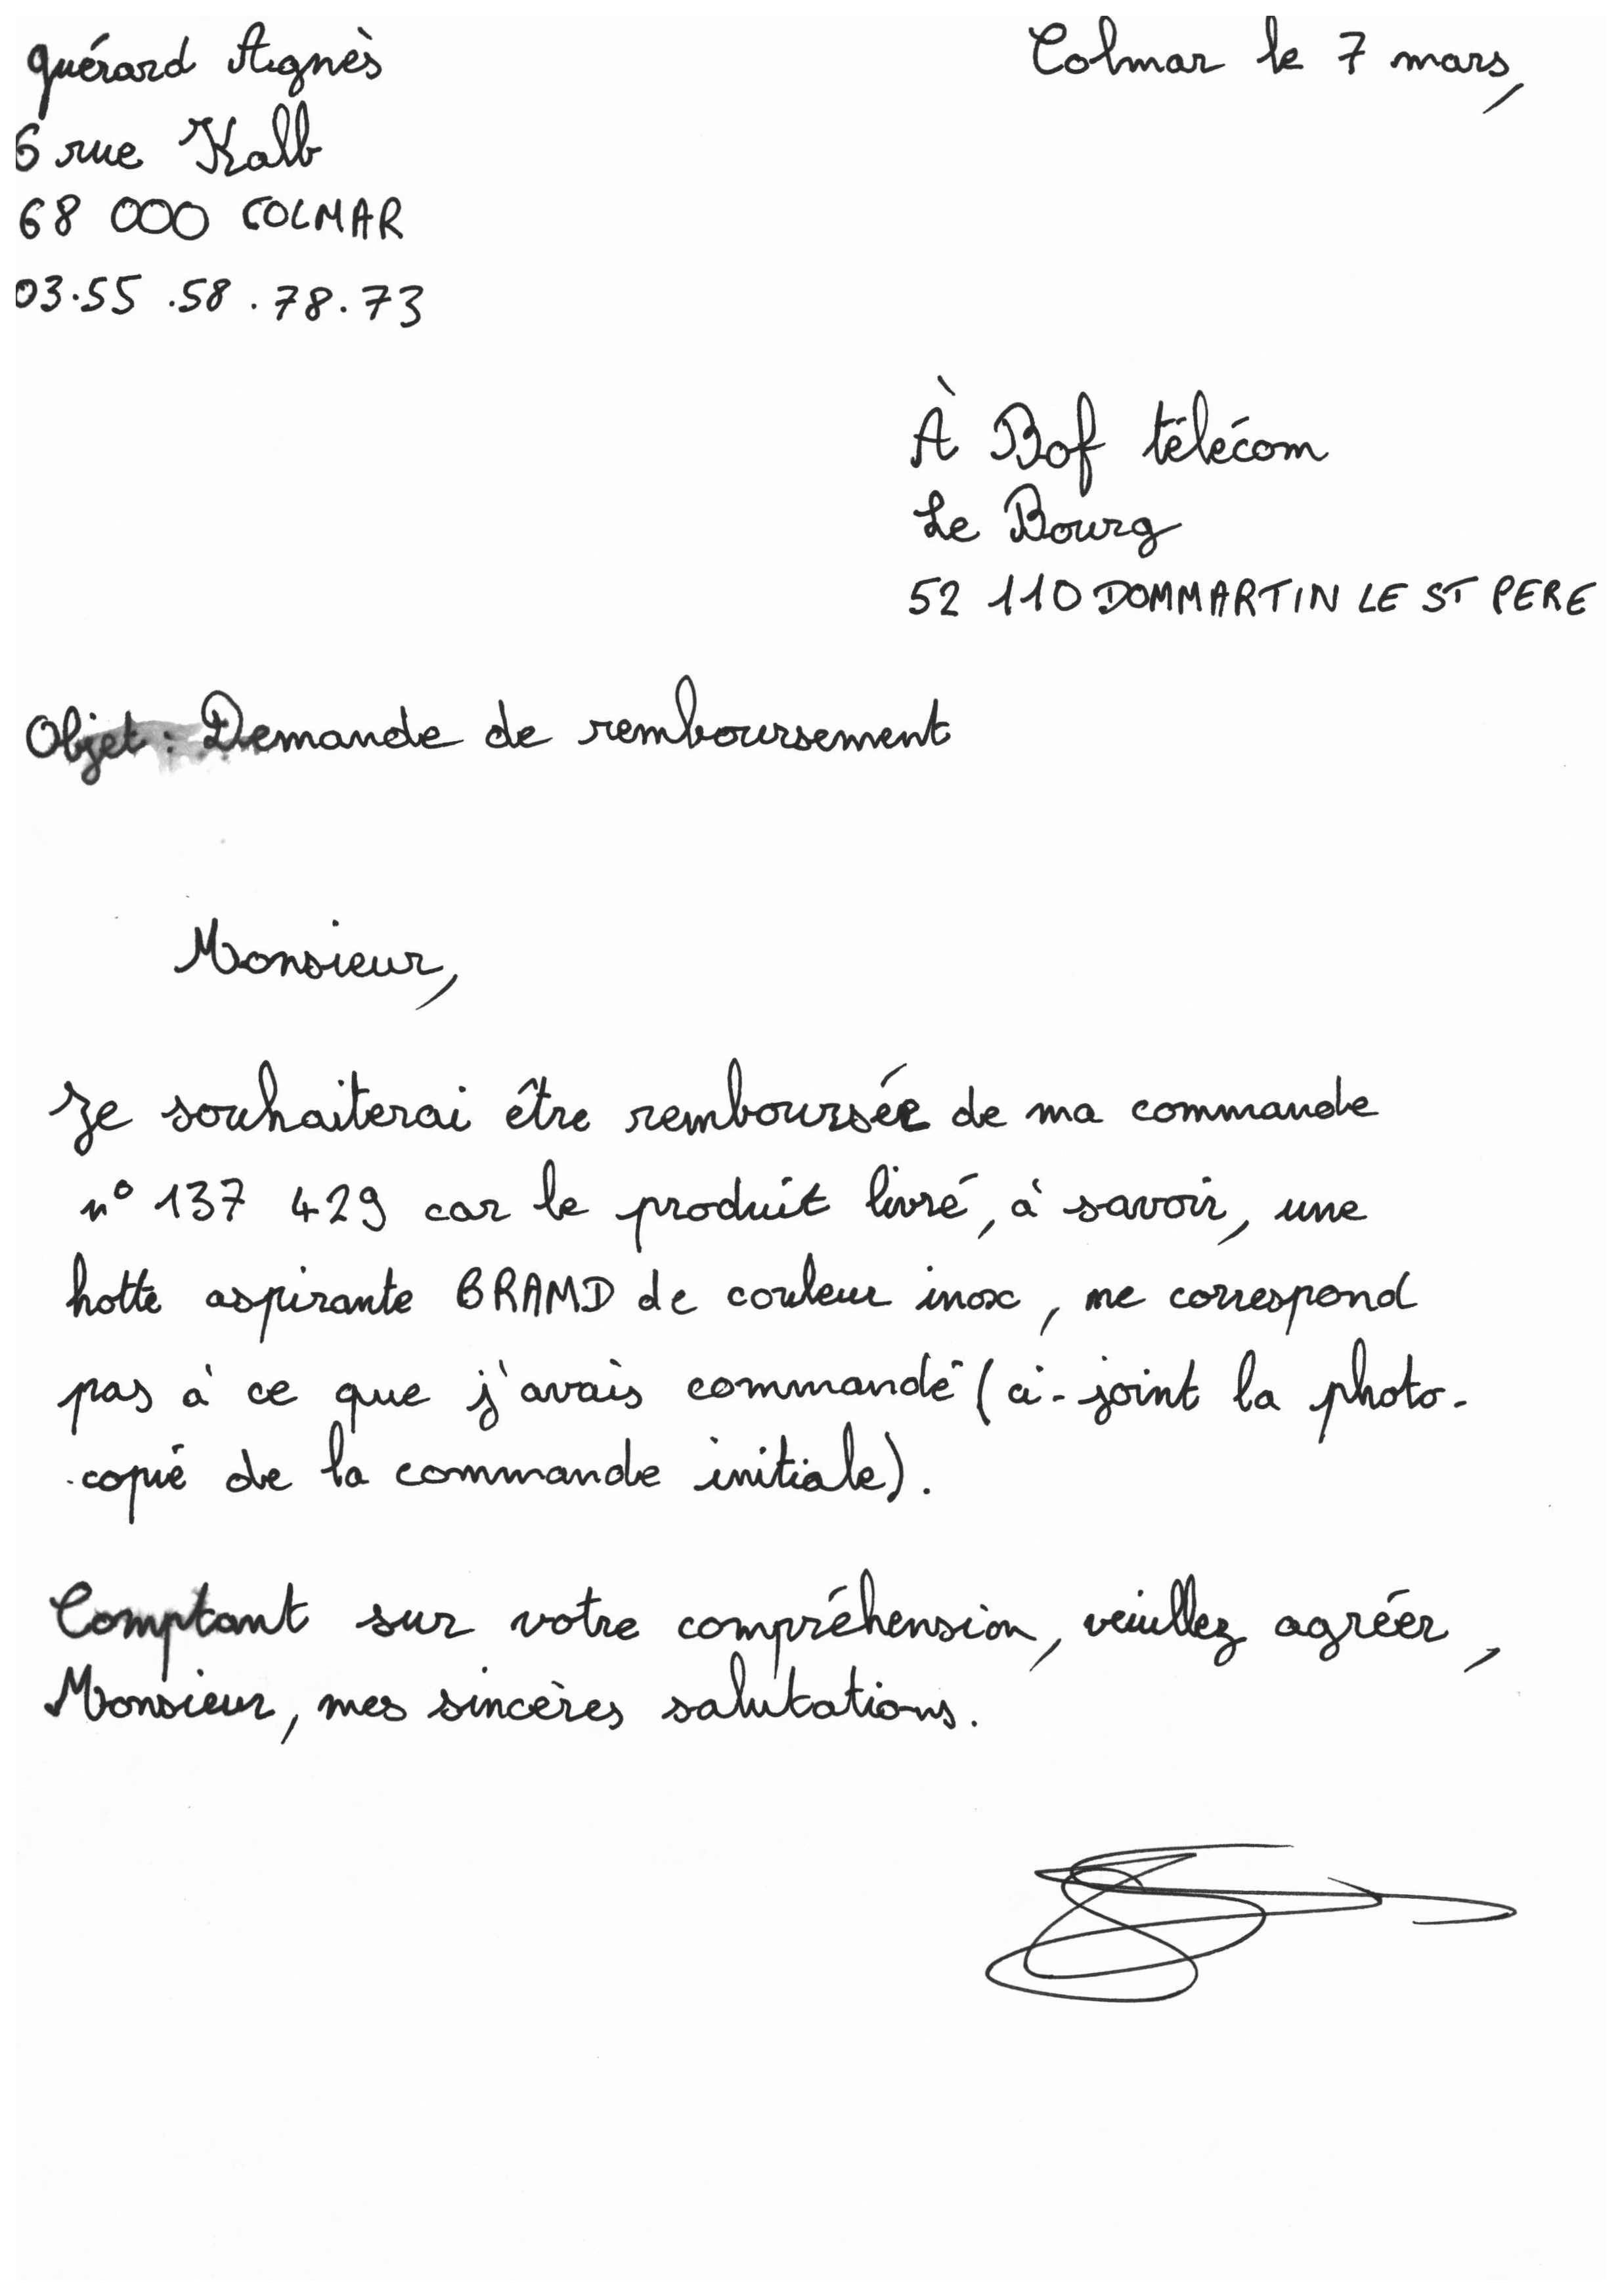 Guérard Agnès
Colmar le 7 mars,
6 rue Kalb
68 000 COLMAR
03.55.58.78.73
À Bof télécom
Le Bourg
52 110 DOMMARTIN LE ST PERE
Objet : Demande de remboursement
Monsieur,
Je souhaiterai être remboursée de ma commande
n° 137 429 car le produit livré, à savoir, une
hotte aspirante BRAMD de couleur inox, ne correspond
pas à ce que j'avais commandé (ci-joint la photo-
-copie de la commande initiale).
Comptant sur votre compréhension, veuillez agréer,
Monsieur, mes sincères salutations.